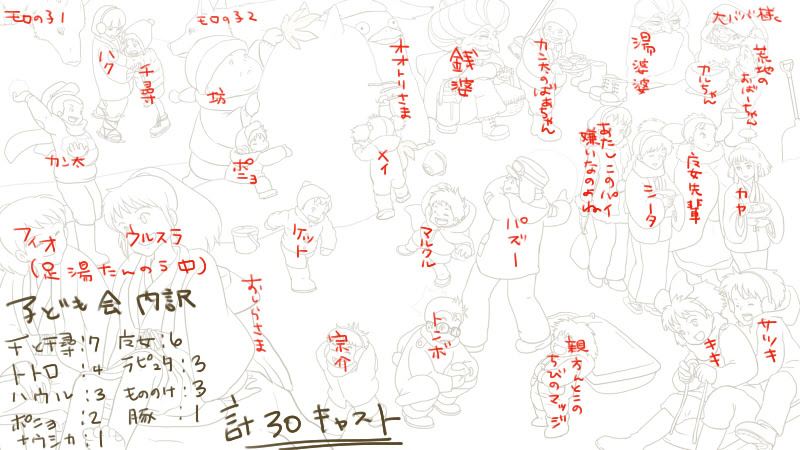 モロの子1
モロの子2
大ババ様
ハク
千尋
坊
オオトリさま
銭婆
カン太のばあちゃん
湯婆婆
カルちゃん
荒地の
おばーちゃん
カン太
ポニョ
メイ
あたしこのパイ
嫌いなのよね
シータ
皮女先輩
カヤ
フィオ
ウルスラ
(足湯たんのう中)
ケット
マルクル
パズー
おしらさま
宗介
トンボ
親方んとこの
ちびのマッジ
キキ
サツキ
子ども会内訳
千と千尋:7
トトロ:4
ハウル:3
ポニョ:2
ナウシカ:1
魔女:6
ラピュタ:3
もののけ:3
豚:1
計30キャスト